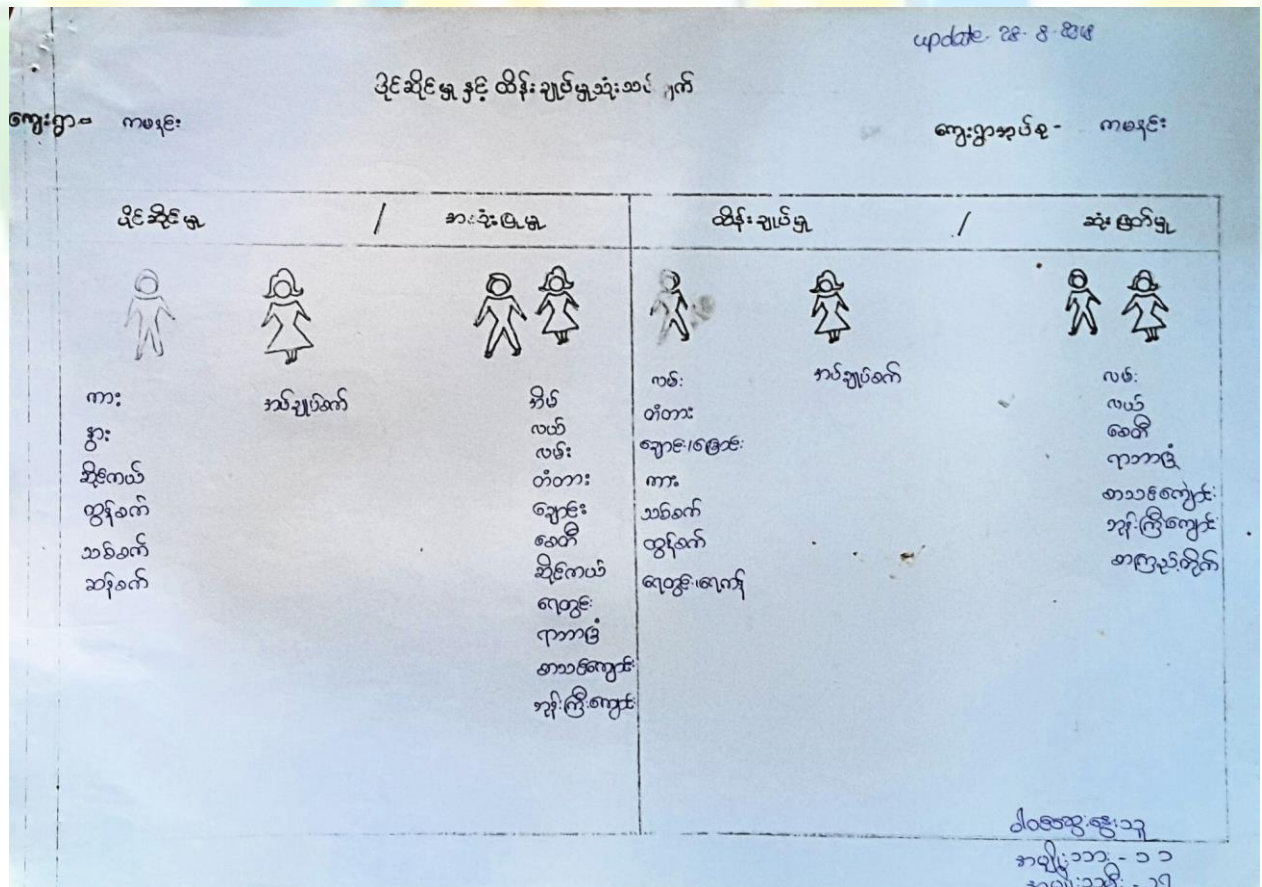 update - ၂၈ - ၈ - ၂၀၁၈
ပိုင်ဆိုင်မှု နှင့် ထိန်းချုပ်မှုသုံးသပ်ချက်
ကျေးရွာ - ကမနင်း
ကျေးရွာအုပ်စု - ကမနင်း
ပိုင်ဆိုင်မှု / အသုံးပြုမှု
ကား
နွား
ဆိုင်ကယ်
ထွန်စက်
သစ်စက်
ဆန်စက်
အပ်ချုပ်စက်
အိမ်
လယ်
လမ်း
တံတား
ချောင်း
စေတီ
ဆိုင်ကယ်
ရေတွင်း
ရာဘာခြံ
စာသင်ကျောင်း
ဘုန်းကြီးကျောင်း
ထိန်းချုပ်မှု / ဆုံးဖြတ်မှု
လမ်း
တံတား
ချောင်း၊မြောင်း
ကား
သစ်စက်
ထွန်စက်
ရေတွင်း၊ရေကန်
အပ်ချုပ်စက်
လမ်း
လယ်
စေတီ
ရာဘာခြံ
စာသင်ကျောင်း
ဘုန်းကြီးကျောင်း
စာကြည့်တိုက်
ပါဝင်ဆွေးနွေးသူ
အမျိုးသား - ၁၁